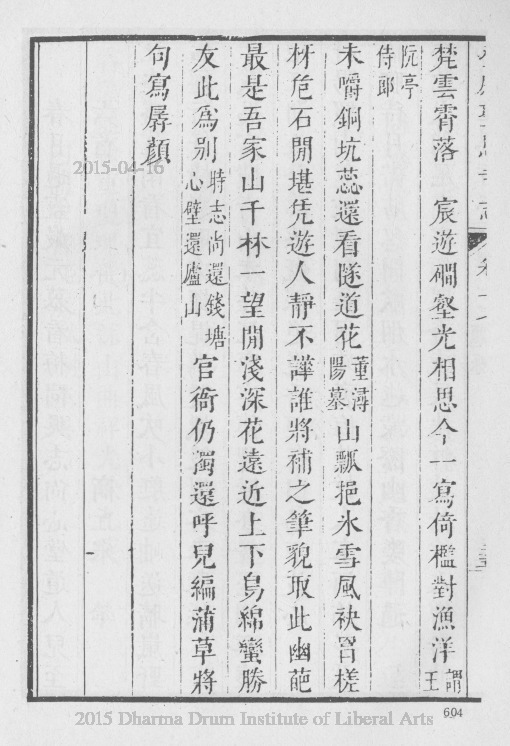 梵雲霄落　宸遊磵壑光相思今一寫倚檻對漁洋謂王
阮亭侍郎
未嚼銅坑蕊還看隧道花董潯陽墓山瓢挹氷雪風袂罥槎
枒危石閒堪凭遊人靜不譁誰將補之筆貌取此幽葩
最是吾家山千林一望閒淺深花遠近上下鳥綿蠻勝
友此爲別時志尚還錢塘心壁還廬山官衙仍濁還呼兒編蒲草將
句寫孱顏
2015-04-16
604
2015 Dharma Drum Institute of Liberal Arts